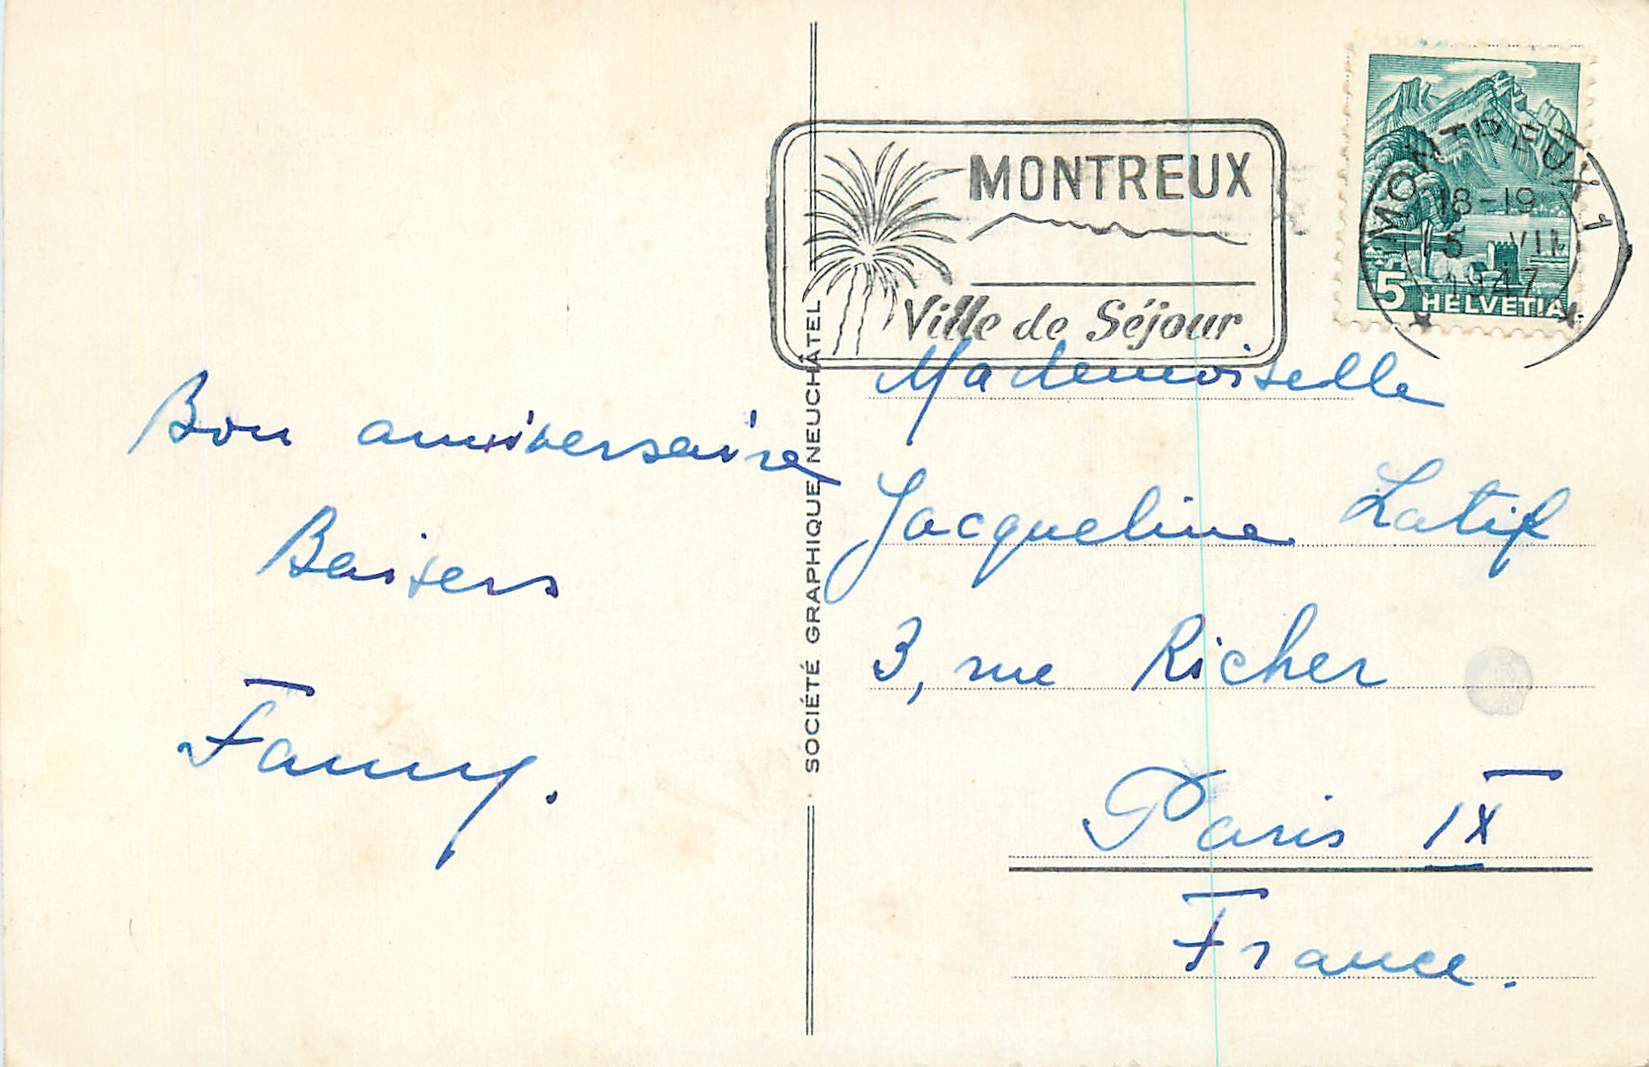 Bon anniversaire
Baisers
Fanny.
SOCIÉTÉ GRAPHIQUE NEUCHÂTEL
MONTREUX
Ville de Séjour
MONTREUX 1
18-19
15 VII
1947
5 HELVETIA
Mademoiselle
Jacqueline Latif
3, rue Richer
Paris IX
France.